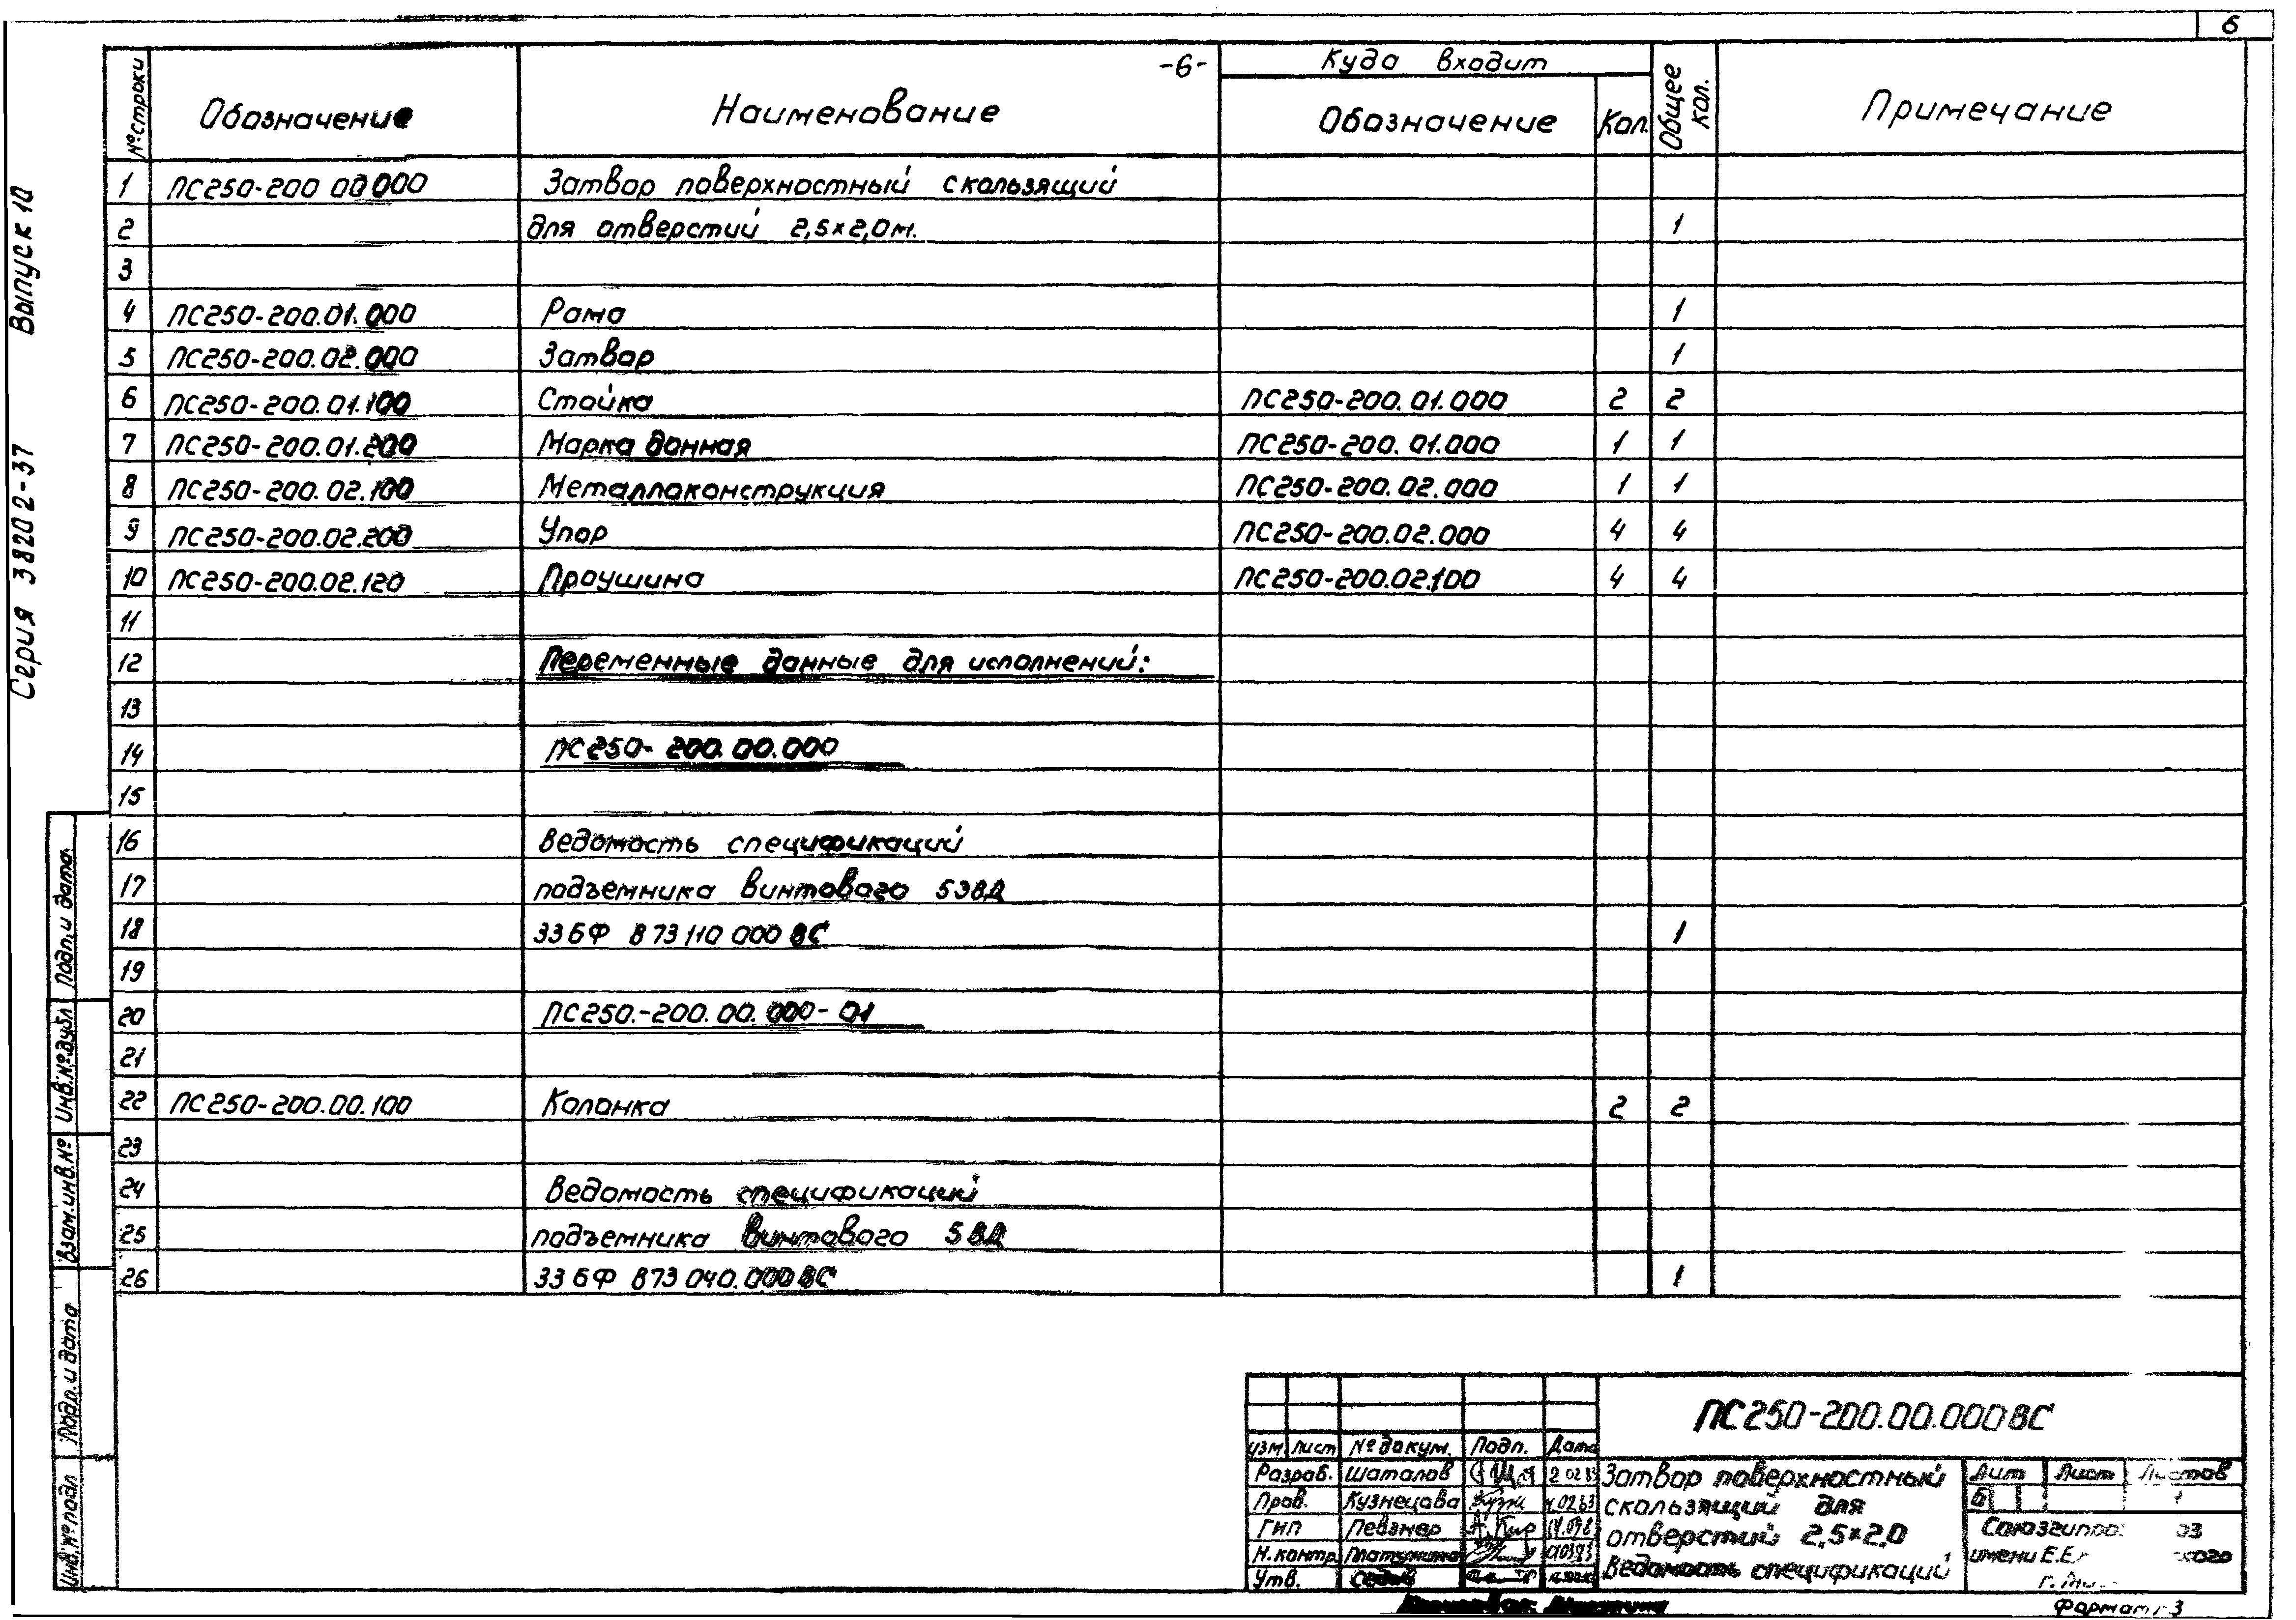 6
-6-
Серия 3.8202-37 Выпуск 10
№ строки Обозначение Наименование Куда входит Общее кол. Примечание
Обозначение Кол.
1 ПС250-200 00000 Затвор поверхностный скользящий
2 для отверстий 2,5×2,0м. 1
3
4 ПС250-200.01.000 Рама 1
5 ПС250-200.02.000 Затвор 1
6 ПС250-200.01.100 Стойка ПС250-200.01.000 2 2
7 ПС250-200.01.200 Марка данная ПС250-200.01.000 1 1
8 ПС250-200.02.100 Металлоконструкция ПС250-200.02.000 1 1
9 ПС250-200.02.200 Упор ПС250-200.02.000 4 4
10 ПС250-200.02.120 Проушина ПС250-200.02.100 4 4
11
12 Переменные данные для исполнений:
13
14 ПС250-200.00.000
15
16 Ведомость спецификаций
17 подъемника винтового 5ЭВД
18 33 БФ 873 110 000 ВС 1
19
20 ПС250.-200.00.000-01
21
22 ПС250-200.00.100 Колонка 2 2
23
24 Ведомость спецификаций
25 подъемника винтового 5ВД
26 33 БФ 873 040.000ВС 1
Подп. и дата
Инв.№ дубл
Взам.инв.№
Подп. и дата
Инв.№ подл
ПС250-200.00.000ВС
Изм. Лист № докум. Подп. Дата
Разраб. Шаталов
Пров. Кузнецова
ГИП Певзнер
Н.контр. Платунина
Утв. Седов
Затвор поверхностный
скользящий для
отверстий 2,5×2,0
Ведомость спецификаций
Лит Лист Листов
Б 1
имени Е.Е.
Формат 3